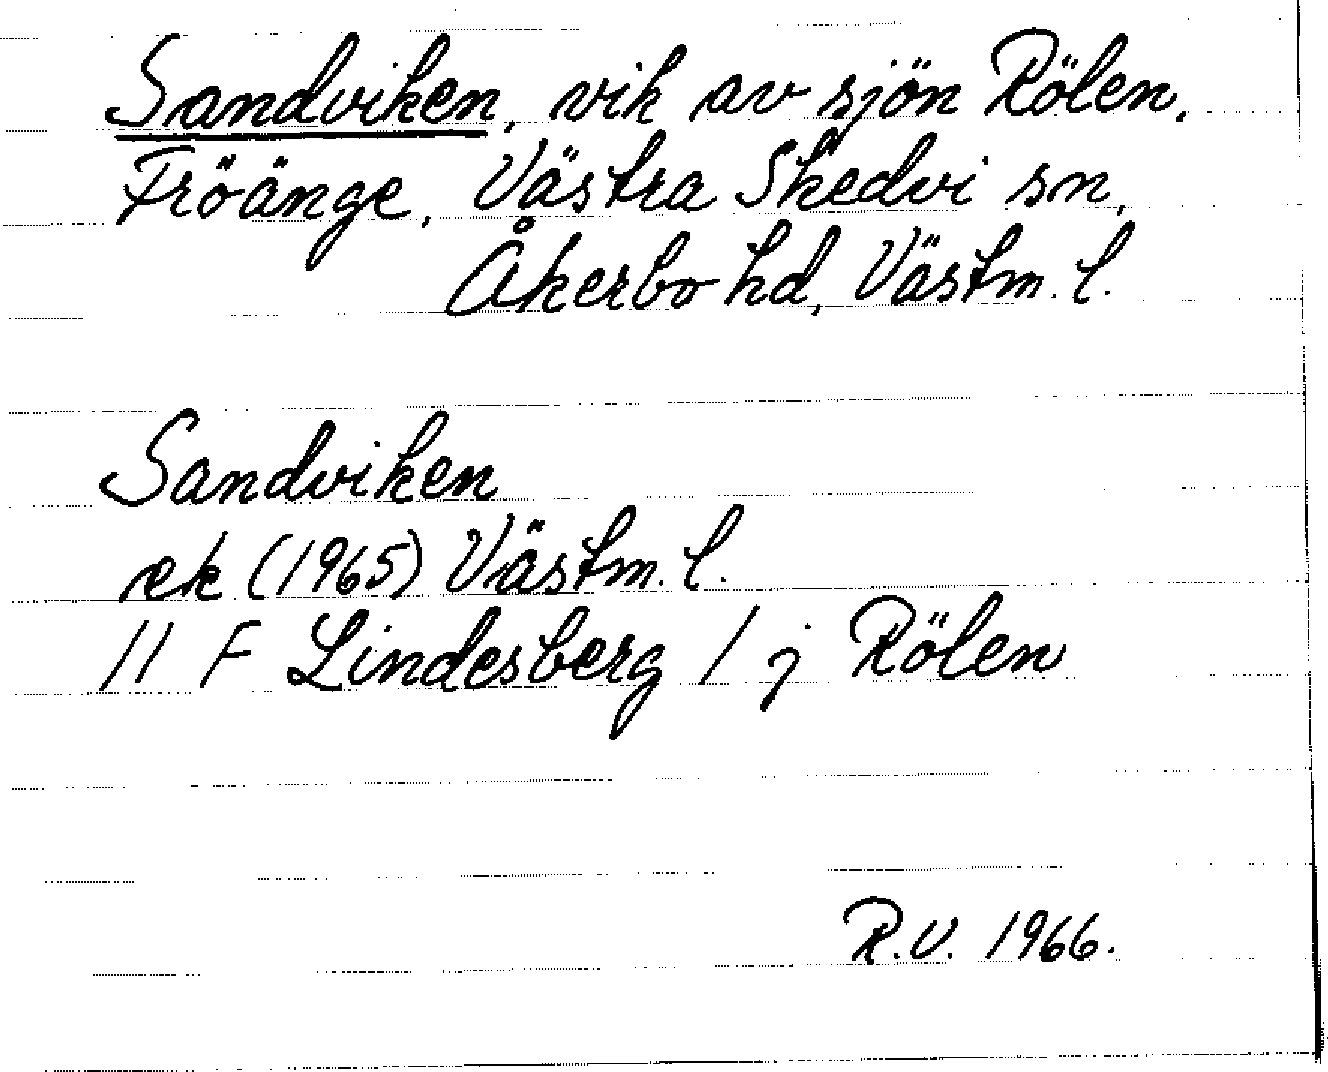 Sandviken, vik av sjön Rölen,
Fröänge, Västra Skedvi sn,
Åkerbo hd, Västm. l.
Sandviken
ek (1965) Västm. l.
11 F Lindesberg / j Rölen
R.V. 1966.